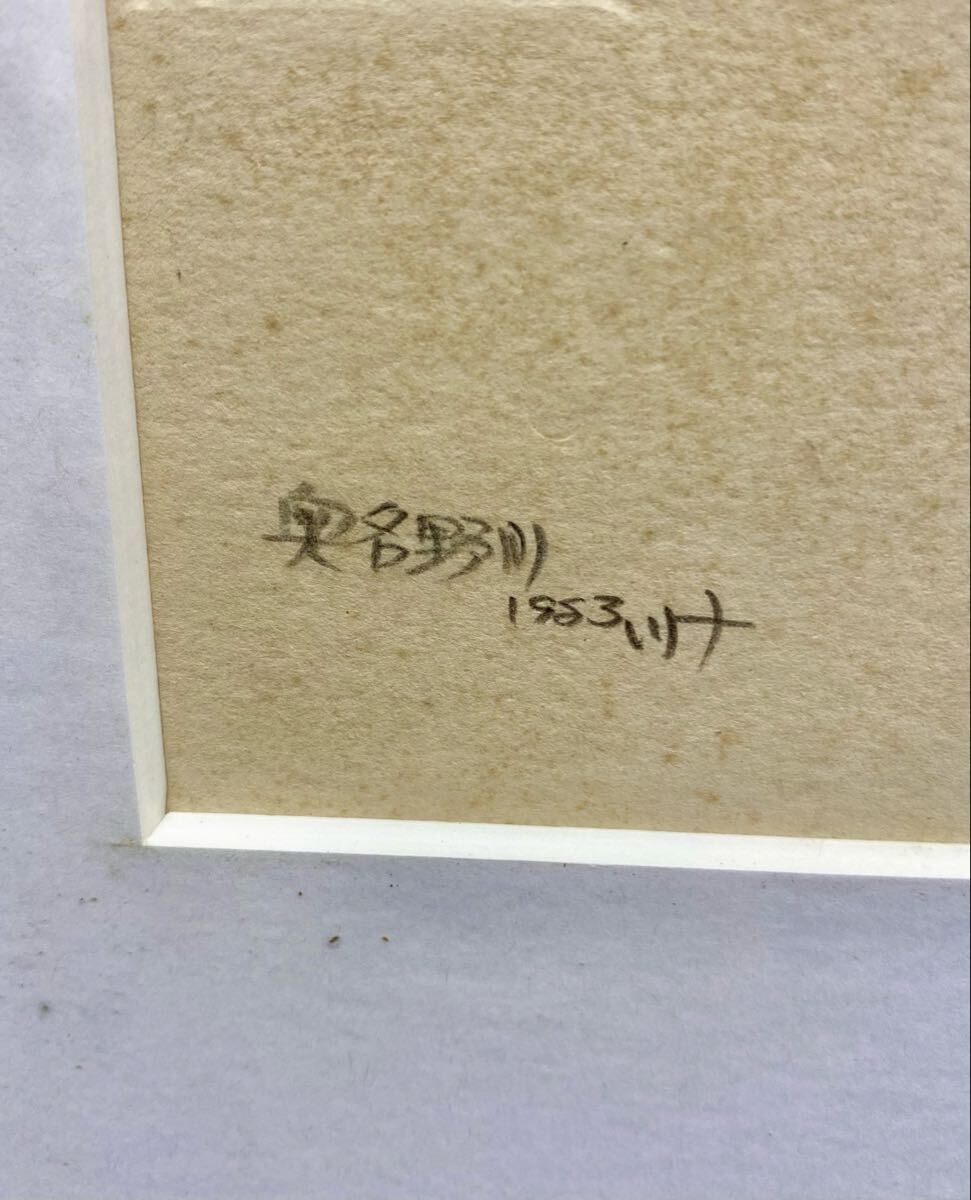 奥名野川
1953